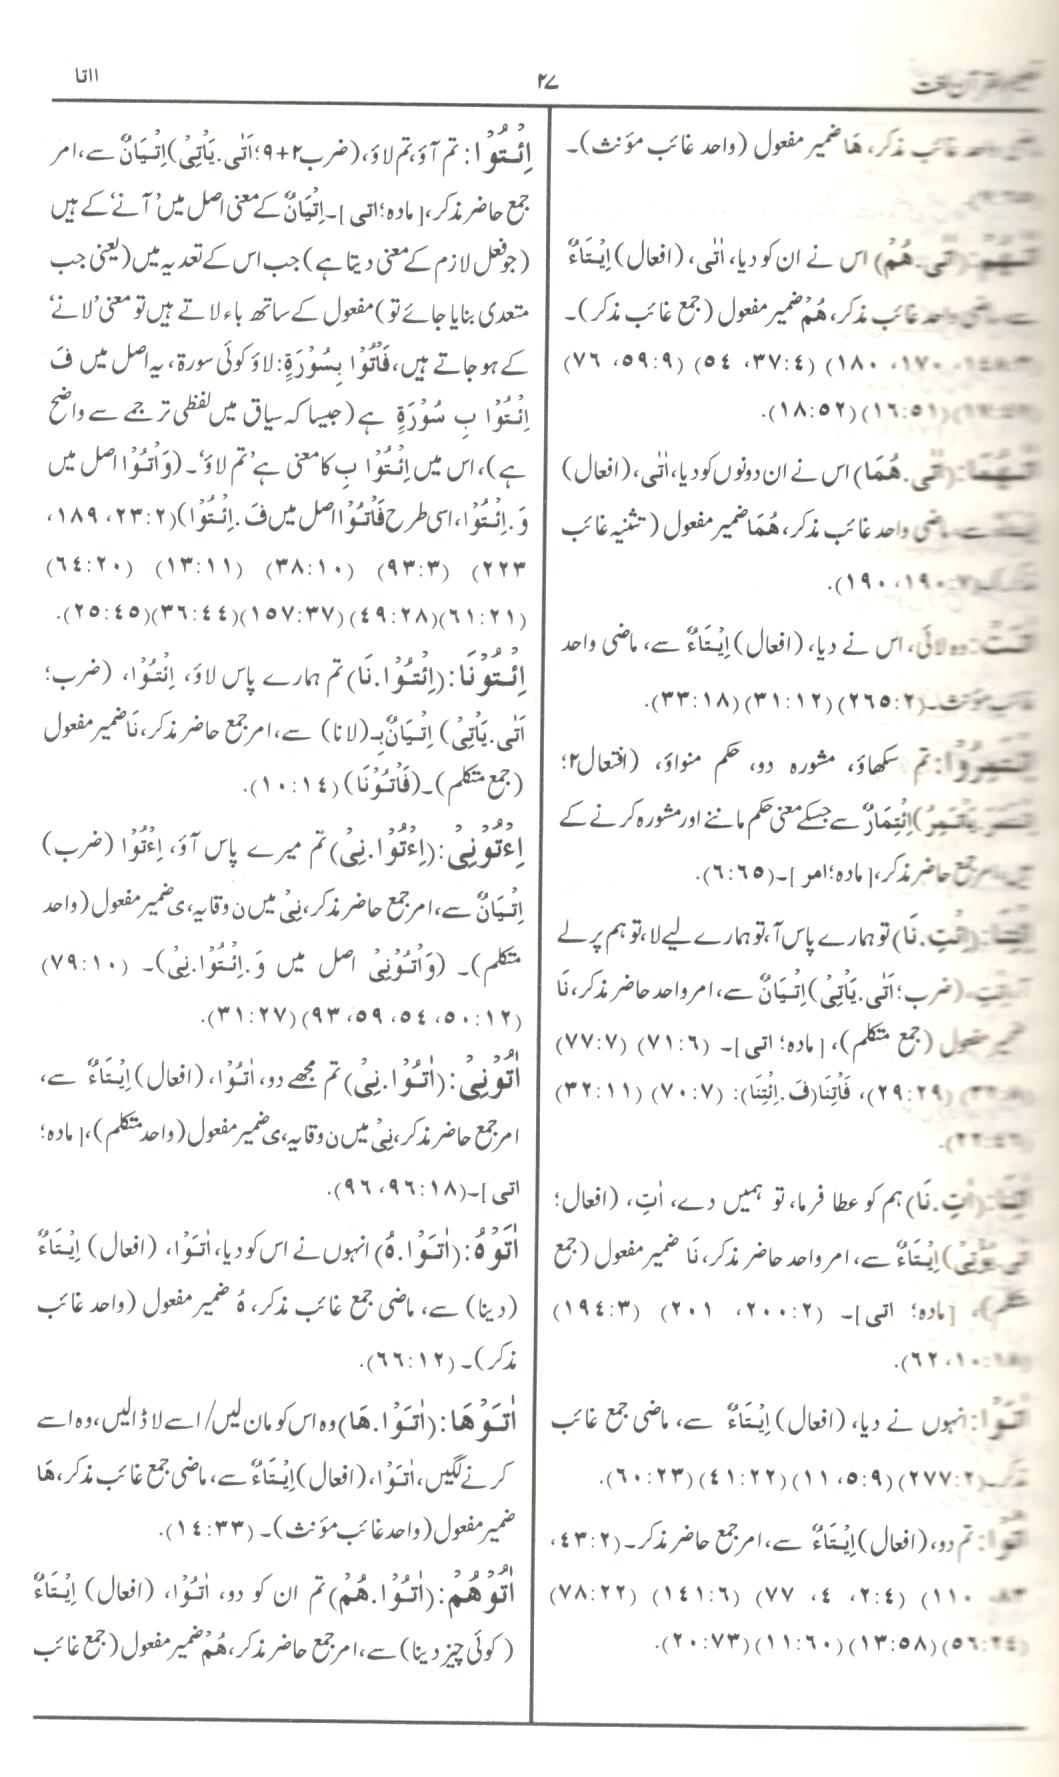 القرآن لغت
٢٧
ااتا
واحد غائب مذکر، هَا ضمیر مفعول (واحد غائب مؤنث)۔
(اٰتٰی.هُمْ) اس نے ان کو دیا، اٰتٰی، (افعال) اِیْتَاءٌ
سے، ماضی واحد غائب مذکر، هُمْ ضمیر مفعول (جمع غائب مذکر)۔
١٧٠، ١٨٠) (٣٧:٤، ٥٤) (٥٩:٩، ٧٦)
(١٦:٥١) (١٨:٥٢).
(اٰتٰی.هُمَا) اس نے ان دونوں کو دیا، اٰتٰی، (افعال)
سے، ماضی واحد غائب مذکر، هُمَا ضمیر مفعول (تثنیہ غائب
(١٩٠:٧، ١٩٠).
وہ لائی، اس نے دیا، (افعال) اِیْتَاءٌ سے، ماضی واحد
غائب مؤنث۔ (٢٦٥:٢) (٣١:١٢) (٣٣:١٨).
تم سکھاؤ، مشورہ دو، حکم منواؤ، (افتعال٢؛
اِئْتِمَارٌ سے جسکے معنی حکم ماننے اور مشورہ کرنے کے
ہیں، امر جمع حاضر مذکر، [مادہ؛ امر]۔ (٦:٦٥).
(اِئْتِ.نَا) تو ہمارے پاس آ، تو ہمارے لیے لا، تو ہم پر لے
(ضرب؛ اَتٰی.یَأْتِیْ) اِتْیَانٌ سے، امر واحد حاضر مذکر، نَا
ضمیر مفعول (جمع متکلم)، [مادہ؛ اتی]۔ (٧١:٦) (٧٧:٧)
(٢٩:٢٩)، فَأْتِنَا (فَ.اِئْتِنَا): (٧٠:٧) (٣٢:١١)
(٢٢:٤٦).
(اٰتِ.نَا) ہم کو عطا فرما، تو ہمیں دے، اٰتِ، (افعال؛
اِیْتَاءٌ سے، امر واحد حاضر مذکر، نَا ضمیر مفعول (جمع
متکلم)، [مادہ؛ اتی]۔ (٢٠٠:٢، ٢٠١) (١٩٤:٣)
١٠:١٨، ٦٢).
اٰتَوْا: انہوں نے دیا، (افعال) اِیْتَاءٌ سے، ماضی جمع غائب
مذکر۔ (٢٧٧:٢) (٥:٩، ١١) (٤١:٢٢) (٦٠:٢٣).
اٰتُوْا: تم دو، (افعال) اِیْتَاءٌ سے، امر جمع حاضر مذکر۔ (٤٣:٢،
٨٣، ١١٠) (٢:٤، ٤، ٧٧) (١٤١:٦) (٧٨:٢٢)
(٥٦:٢٤) (١٣:٥٨) (١١:٦٠) (٢٠:٧٣).
اِئْتُوْا: تم آؤ، تم لاؤ، (ضرب٢+٩؛ اَتٰی.یَأْتِیْ) اِتْیَانٌ سے، امر
جمع حاضر مذکر، [مادہ؛ اتی]۔ اِتْیَانٌ کے معنی اصل میں 'آنے' کے ہیں
(جو فعل لازم کے معنی دیتا ہے) جب اس کے تعدیہ میں (یعنی جب
متعدی بنایا جائے تو) مفعول کے ساتھ باء لاتے ہیں تو معنی 'لانے'
کے ہو جاتے ہیں، فَأْتُوْا بِسُوْرَةٍ: لاؤ کوئی سورة، یہ اصل میں فَ
اِئْتُوْا بِ سُوْرَةٍ ہے (جیسا کہ سیاق میں لفظی ترجمے سے واضح
ہے)، اس میں اِئْتُوْا بِ کا معنی ہے 'تم لاؤ'۔ (وَأْتُوْا اصل میں
وَ.اِئْتُوْا، اسی طرح فَأْتُوْا اصل میں فَ.اِئْتُوْا) (٢٣:٢، ١٨٩،
٢٢٣) (٩٣:٣) (٣٨:١٠) (١٣:١١) (٦٤:٢٠)
(٦١:٢١) (٤٩:٢٨) (١٥٧:٣٧) (٣٦:٤٤) (٢٥:٤٥).
اِئْتُوْنَا: (اِئْتُوْا.نَا) تم ہمارے پاس لاؤ، اِئْتُوْا، (ضرب؛
اَتٰی.یَأْتِیْ) اِتْیَانٌ بِـ (لانا) سے، امر جمع حاضر مذکر، نَا ضمیر مفعول
(جمع متکلم)۔ (فَأْتُوْنَا) (١٠:١٤).
اِءْتُوْنِیْ: (اِءْتُوْا.نِیْ) تم میرے پاس آؤ، اِءْتُوْا (ضرب)
اِتْیَانٌ سے، امر جمع حاضر مذکر، نِیْ میں ن وقایہ، ی ضمیر مفعول (واحد
متکلم)۔ (وَأْتُوْنِیْ اصل میں وَ.اِئْتُوْا.نِیْ)۔ (٧٩:١٠)
(٥٠:١٢، ٥٤، ٥٩، ٩٣) (٣١:٢٧).
اٰتُوْنِیْ: (اٰتُوْا.نِیْ) تم مجھے دو، اٰتُوْا، (افعال) اِیْتَاءٌ سے،
امر جمع حاضر مذکر، نِیْ میں ن وقایہ، ی ضمیر مفعول (واحد متکلم)، [مادہ؛
اتی]۔ (٩٦:١٨، ٩٦).
اٰتَوْهُ: (اٰتَوْا.هُ) انہوں نے اس کو دیا، اٰتَوْا، (افعال) اِیْتَاءٌ
(دینا) سے، ماضی جمع غائب مذکر، هُ ضمیر مفعول (واحد غائب
مذکر)۔ (٦٦:١٢).
اٰتَوْهَا: (اٰتَوْا.هَا) وہ اس کو مان لیں/ اسے لا ڈالیں، وہ اسے
کرنے لگیں، اٰتَوْا، (افعال) اِیْتَاءٌ سے، ماضی جمع غائب مذکر، هَا
ضمیر مفعول (واحد غائب مؤنث)۔ (١٤:٣٣).
اٰتُوْهُمْ: (اٰتُوْا.هُمْ) تم ان کو دو، اٰتُوْا، (افعال) اِیْتَاءٌ
(کوئی چیز دینا) سے، امر جمع حاضر مذکر، هُمْ ضمیر مفعول (جمع غائب